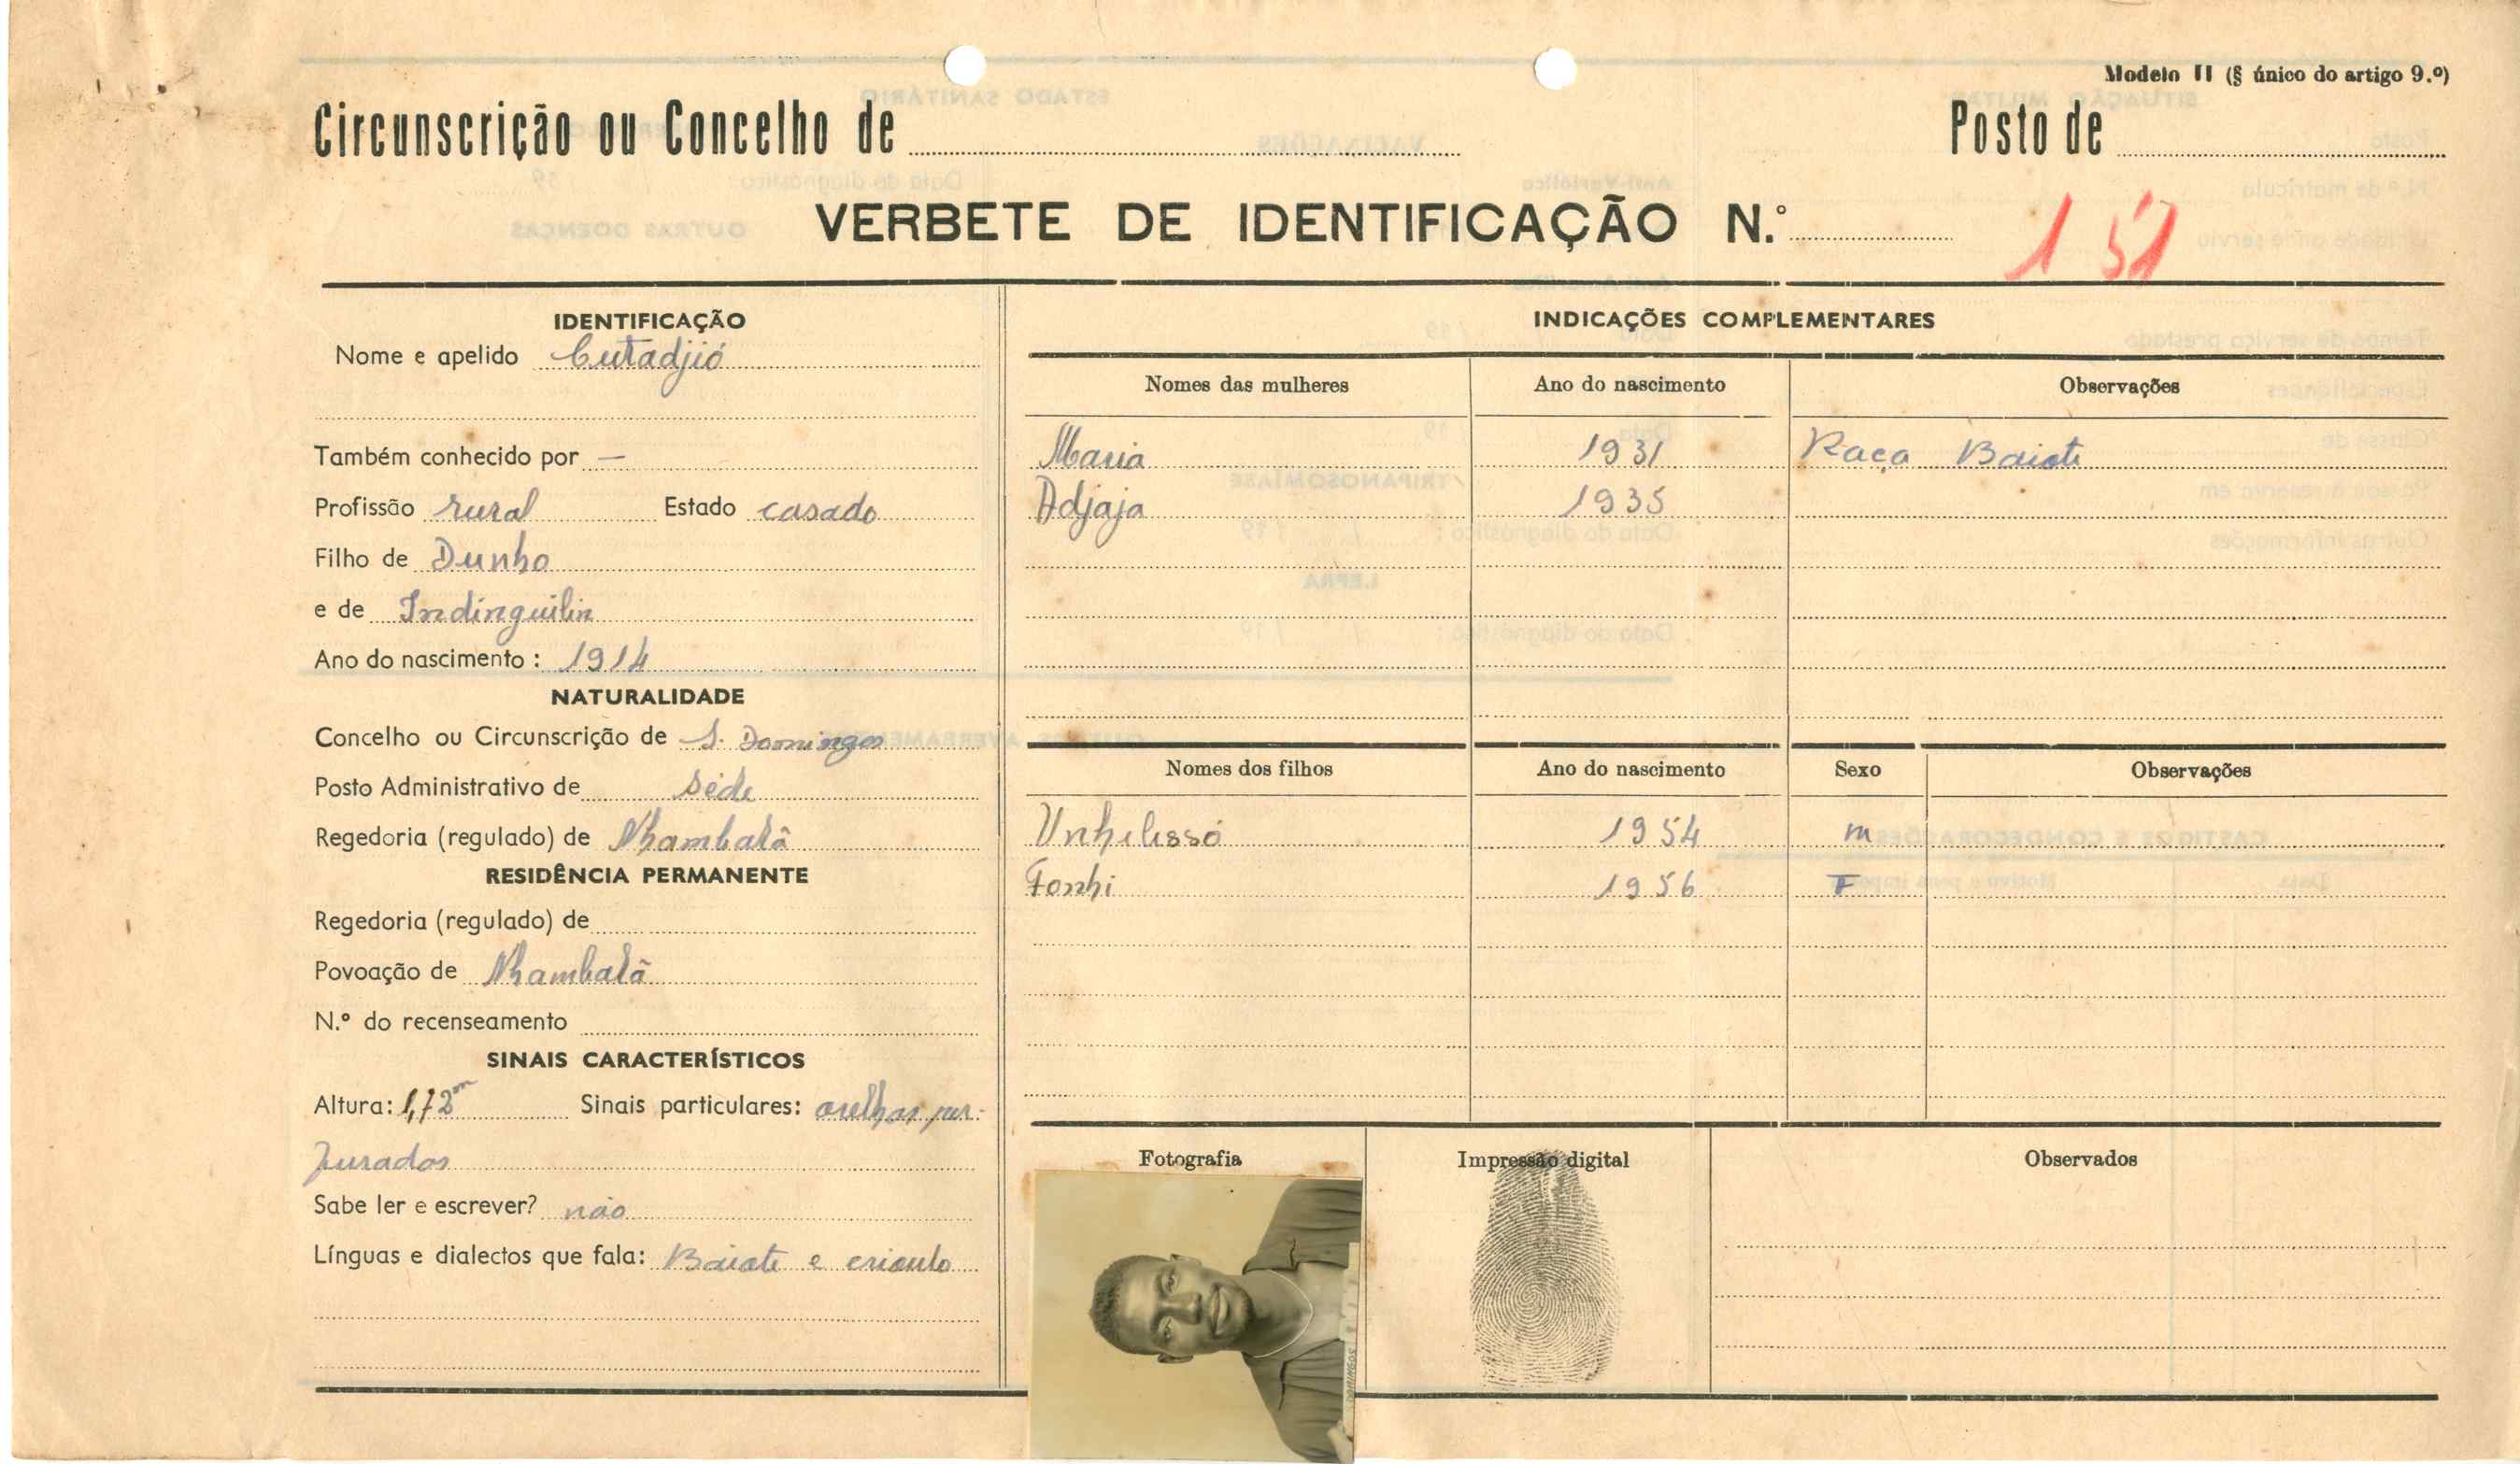 Modelo II (§ único do artigo 9.º)
Circunscrição ou Concelho de
Posto de
VERBETE DE IDENTIFICAÇÃO N.º 151
IDENTIFICAÇÃO
Nome e apelido Cutadjió
Também conhecido por —
Profissão rural Estado casado
Filho de Dunho
e de Indinguilin
Ano do nascimento : 1914
NATURALIDADE
Concelho ou Circunscrição de S. Domingos
Posto Administrativo de Séde
Regedoria (regulado) de Nhambalã
RESIDÊNCIA PERMANENTE
Regedoria (regulado) de
Povoação de Nhambalã
N.º do recenseamento
SINAIS CARACTERÍSTICOS
Altura: 1,72m Sinais particulares: orelhas per-
furados
Sabe ler e escrever? não
Línguas e dialectos que fala: Baiote e crioulo
INDICAÇÕES COMPLEMENTARES
Nomes das mulheres Ano do nascimento Observações
Maria 1931 Raça Baiote
Adjaja 1935
Nomes dos filhos Ano do nascimento Sexo Observações
Unhelissó 1954 m
Fonhi 1956 F
Fotografia Impressão digital Observados